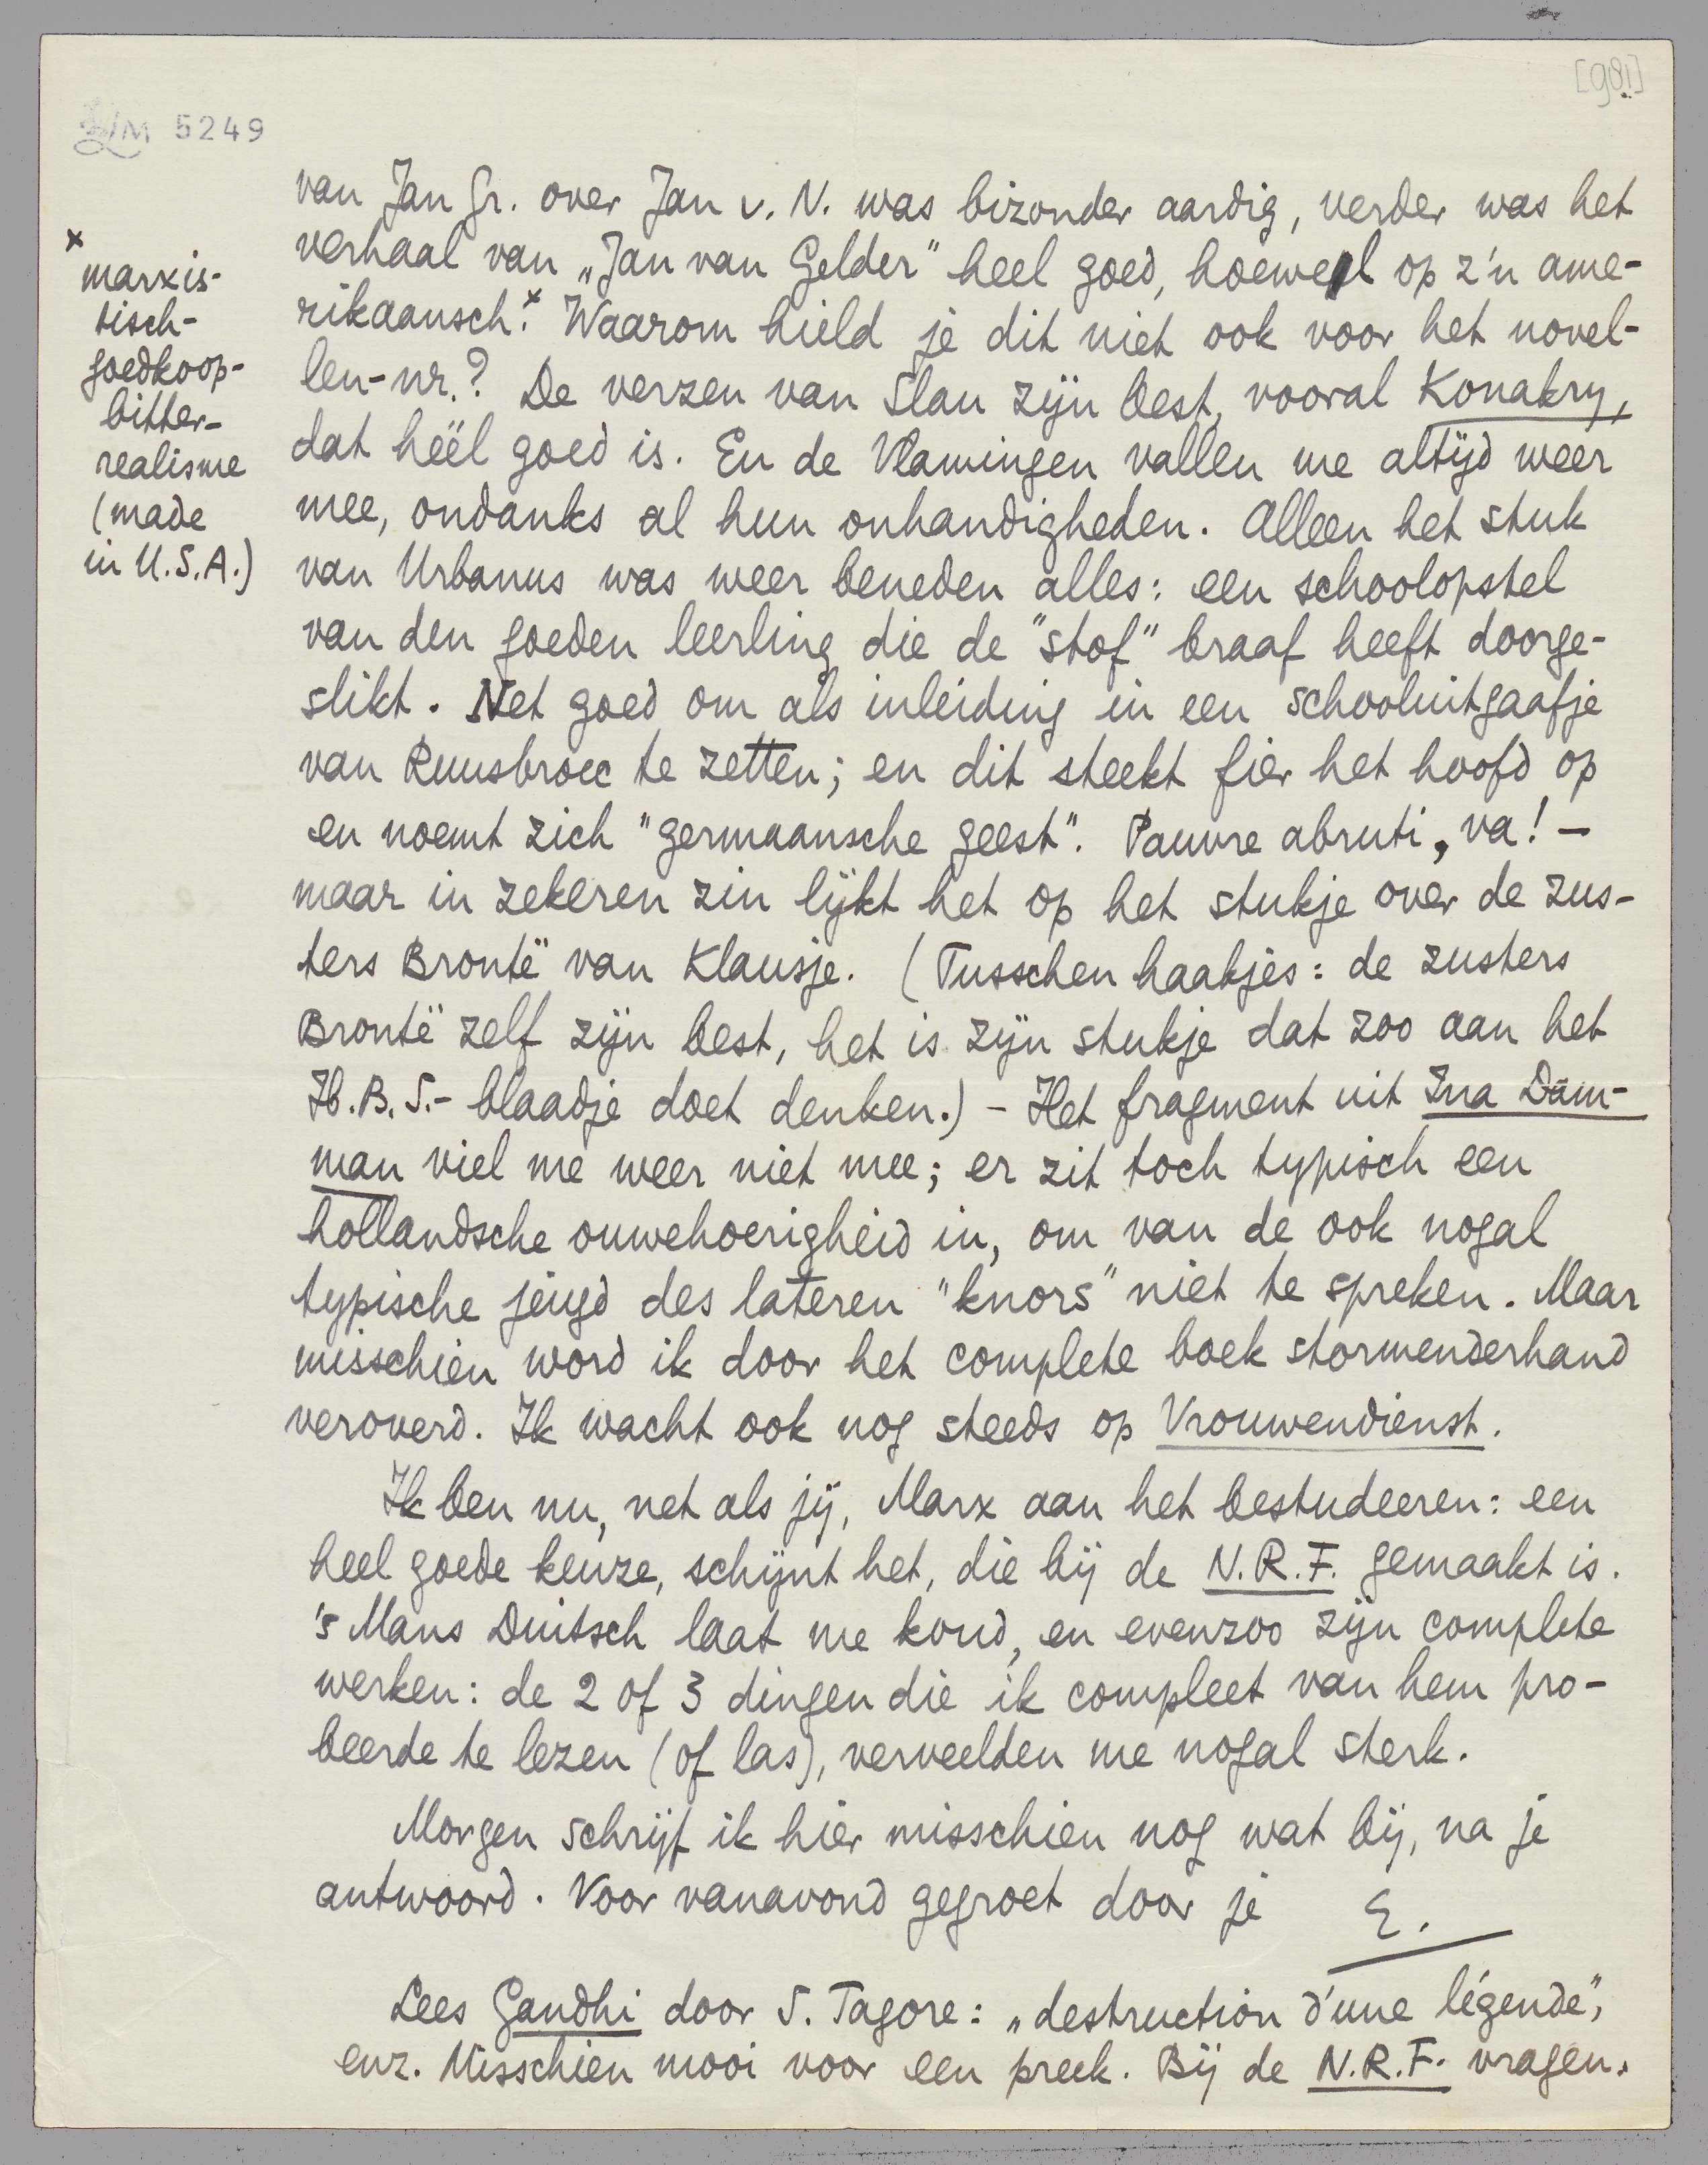 [981]
LM 5249
van Jan Gr. over Jan v. N. was bizonder aardig, verder was het
verhaal van „Jan van Gelder" heel goed, hoewel op z'n ame-
rikaansch.x Waarom hield je dit niet ook voor het novel-
len-nr.? De verzen van Slau zijn best, vooral Konakry,
dat héél goed is. En de Vlamingen vallen me altijd weer
mee, ondanks al hun onhandigheden. Alleen het stuk
van Urbanus was weer beneden alles: een schoolopstel
van den goeden leerling die de "stof" braaf heeft doorge-
slikt. Net goed om als inleiding in een schooluitgaafje
van Ruusbroec te zetten; en dit steekt fier het hoofd op
en noemt zich "germaansche geest". Pauvre abruti, va! —
maar in zekeren zin lijkt het op het stukje over de zus-
ters Brontë van Klausje. (Tusschen haakjes: de zusters
Brontë zelf zijn best, het is zijn stukje dat zoo aan het
H.B.S.- blaadje doet denken.) - Het fragment uit Ina Dam-
man viel me weer niet mee; er zit toch typisch een
hollandsche ouwehoerigheid in, om van de ook nogal
typische jeugd des lateren "knors" niet te spreken. Maar
misschien word ik door het complete boek stormenderhand
veroverd. Ik wacht ook nog steeds op Vrouwendienst.
Ik ben nu, net als jij, Marx aan het bestudeeren: een
heel goede keuze, schijnt het, die bij de N.R.F. gemaakt is.
's Mans Duitsch laat me koud, en evenzoo zijn complete
werken: de 2 of 3 dingen die ik compleet van hem pro-
beerde te lezen (of las), verveelden me nogal sterk.
Morgen schrijf ik hier misschien nog wat bij, na je
antwoord. Voor vanavond gegroet door je E.
Lees Gandhi door S. Tagore: „destruction d'une légende",
enz. Misschien mooi voor een preek. Bij de N.R.F. vragen.
x
marxis-
tisch-
goedkoop-
bitter-
realisme
(made
in U.S.A.)